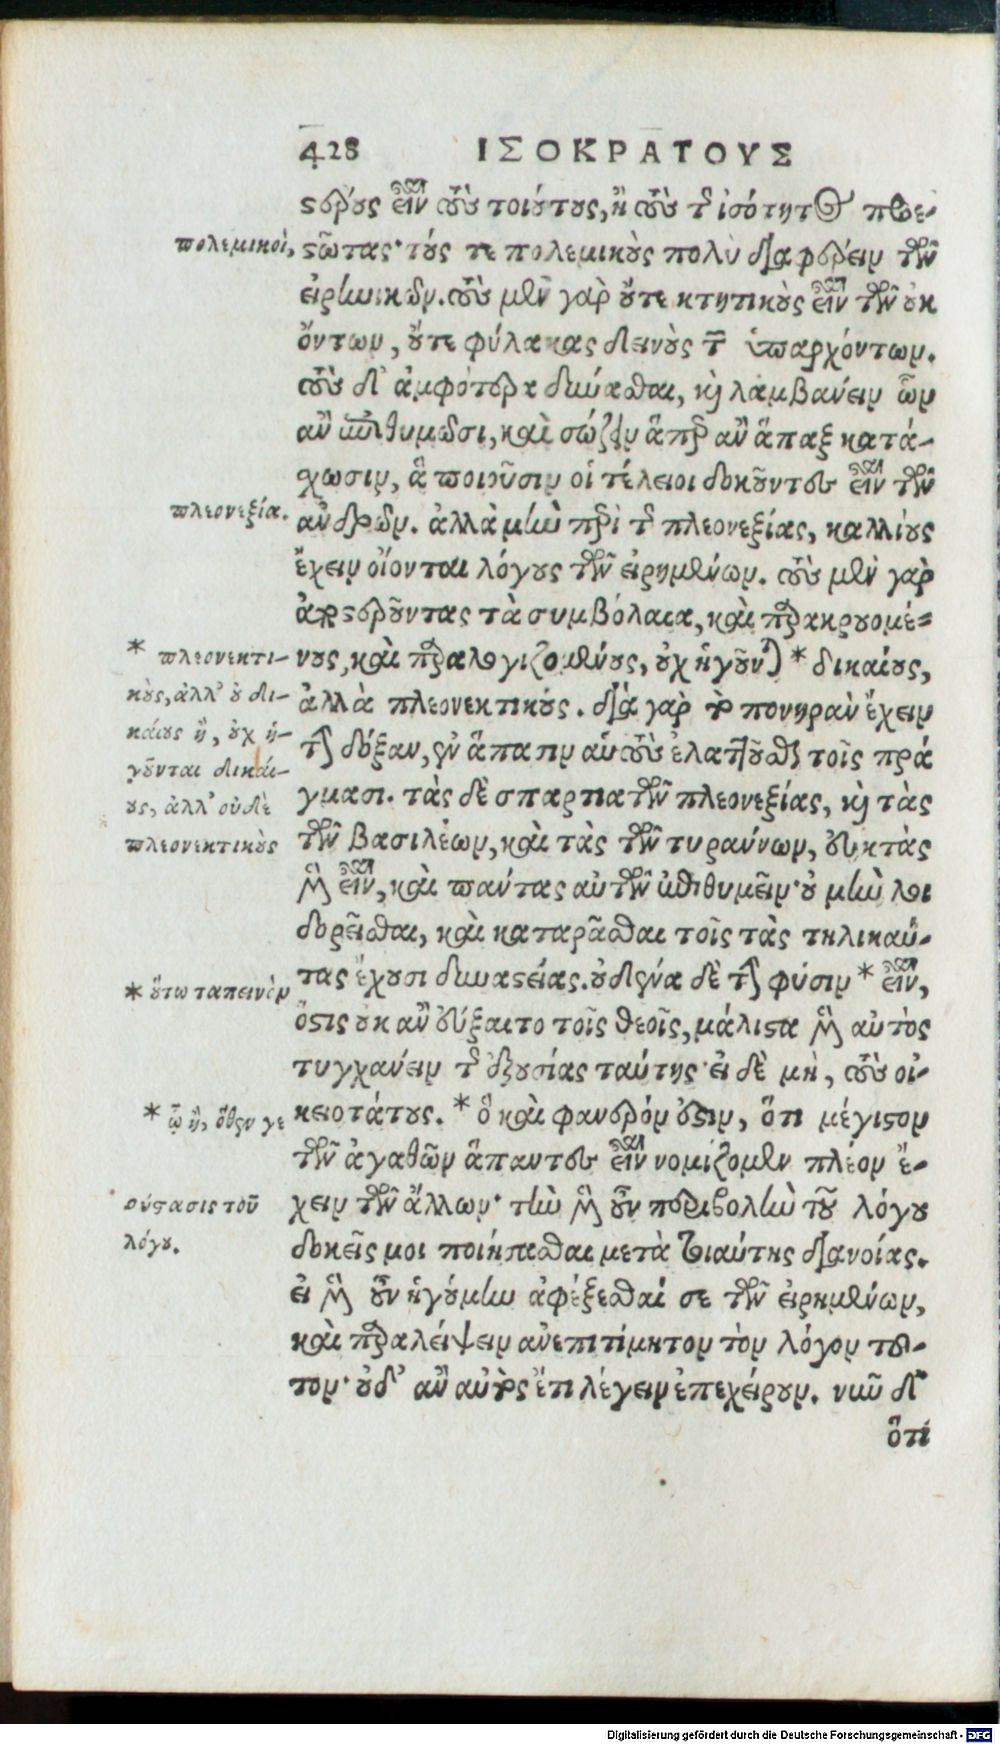 428 ΙΣΟΚΡΑΤΟΥΣ
στέρους εἶναι τοὺς τοιούτους, ἢ τοὺς τῆς ἰσότητος προε-
πολεμικοὶ,
στῶτας· τούς τε πολεμικοὺς πολὺ διαφέρειν τῶν
εἰρηνικῶν. τοὺς μὲν γὰρ οὔτε κτητικοὺς εἶναι τῶν οὐκ
ὄντων, οὔτε φύλακας δεινοὺς τῶν ὑπαρχόντων.
τοὺς δ' ἀμφότερα δύνασθαι, καὶ λαμβάνειν ὧν
ἂν ἐπιθυμῶσι, καὶ σώζειν ἅπερ ἂν ἅπαξ κατά-
σχωσιν, ἃ ποιοῦσιν οἱ τέλειοι δοκοῦντες εἶναι τῶν
πλεονεξία.
ἀνδρῶν. ἀλλὰ μὴν περὶ τῆς πλεονεξίας, καλλίους
ἔχειν οἴονται λόγους τῶν εἰρημένων. τοὺς μὲν γὰρ
ἀποστεροῦντας τὰ συμβόλαια, καὶ παρακρουομέ-
νους, καὶ παραλογιζομένους, οὐχ ἡγοῦνται * δικαίους,
* πλεονεκτι-
κοὺς, ἀλλ' οὐ δι-
καίους ἢ, οὐχ ἡ-
γοῦνται δικαί-
ους, ἀλλ' οὐδὲ
πλεονεκτικοὺς
ἀλλὰ πλεονεκτικούς. διὰ γὰρ τὸ πονηρὰν ἔχειν
τὴν δόξαν, ἐν ἅπασιν αὐτοὺς ἐλαττοῦσθαι τοῖς πρά
γμασι. τὰς δὲ σπαρτιατῶν πλεονεξίας, καὶ τὰς
τῶν βασιλέων, καὶ τὰς τῶν τυράννων, εὐκτὰς
μὲν εἶναι, καὶ πάντας αὐτῶν ἐπιθυμεῖν· οὐ μὴν λοι
δορεῖσθαι, καὶ καταρᾶσθαι τοῖς τὰς τηλικαύ-
τας ἔχουσι δυναστείας. οὐδένα δὲ τὴν φύσιν * εἶναι,
* οὕτω ταπεινὸν
ὅστις οὐκ ἂν εὔξαιτο τοῖς θεοῖς, μάλιστα μὲν αὐτὸς
τυγχάνειν τῆς ἐξουσίας ταύτης· εἰ δὲ μὴ, τοὺς οἰ-
κειοτάτους. * ὃ καὶ φανερόν ἐστιν, ὅτι μέγιστον
* ᾧ ἢ, ὅθεν γε
τῶν ἀγαθῶν ἅπαντες εἶναι νομίζομεν πλέον ἔ-
χειν τῶν ἄλλων· τὴν μὲν οὖν περιβολὴν τοῦ λόγου
σύστασις τοῦ
λόγου.
δοκεῖς μοι ποιήσασθαι μετὰ τοιαύτης διανοίας.
εἰ μὲν οὖν ἡγούμην ἀφέξεσθαί σε τῶν εἰρημένων,
καὶ παραλείψειν ἀνεπιτίμητον τὸν λόγον τοῦ-
τον· οὐδ' ἂν αὐτὸς ἔτι λέγειν ἐπεχείρουν. νῦν δ'
ὅτι
Digitalisierung gefördert durch die Deutsche Forschungsgemeinschaft - DFG